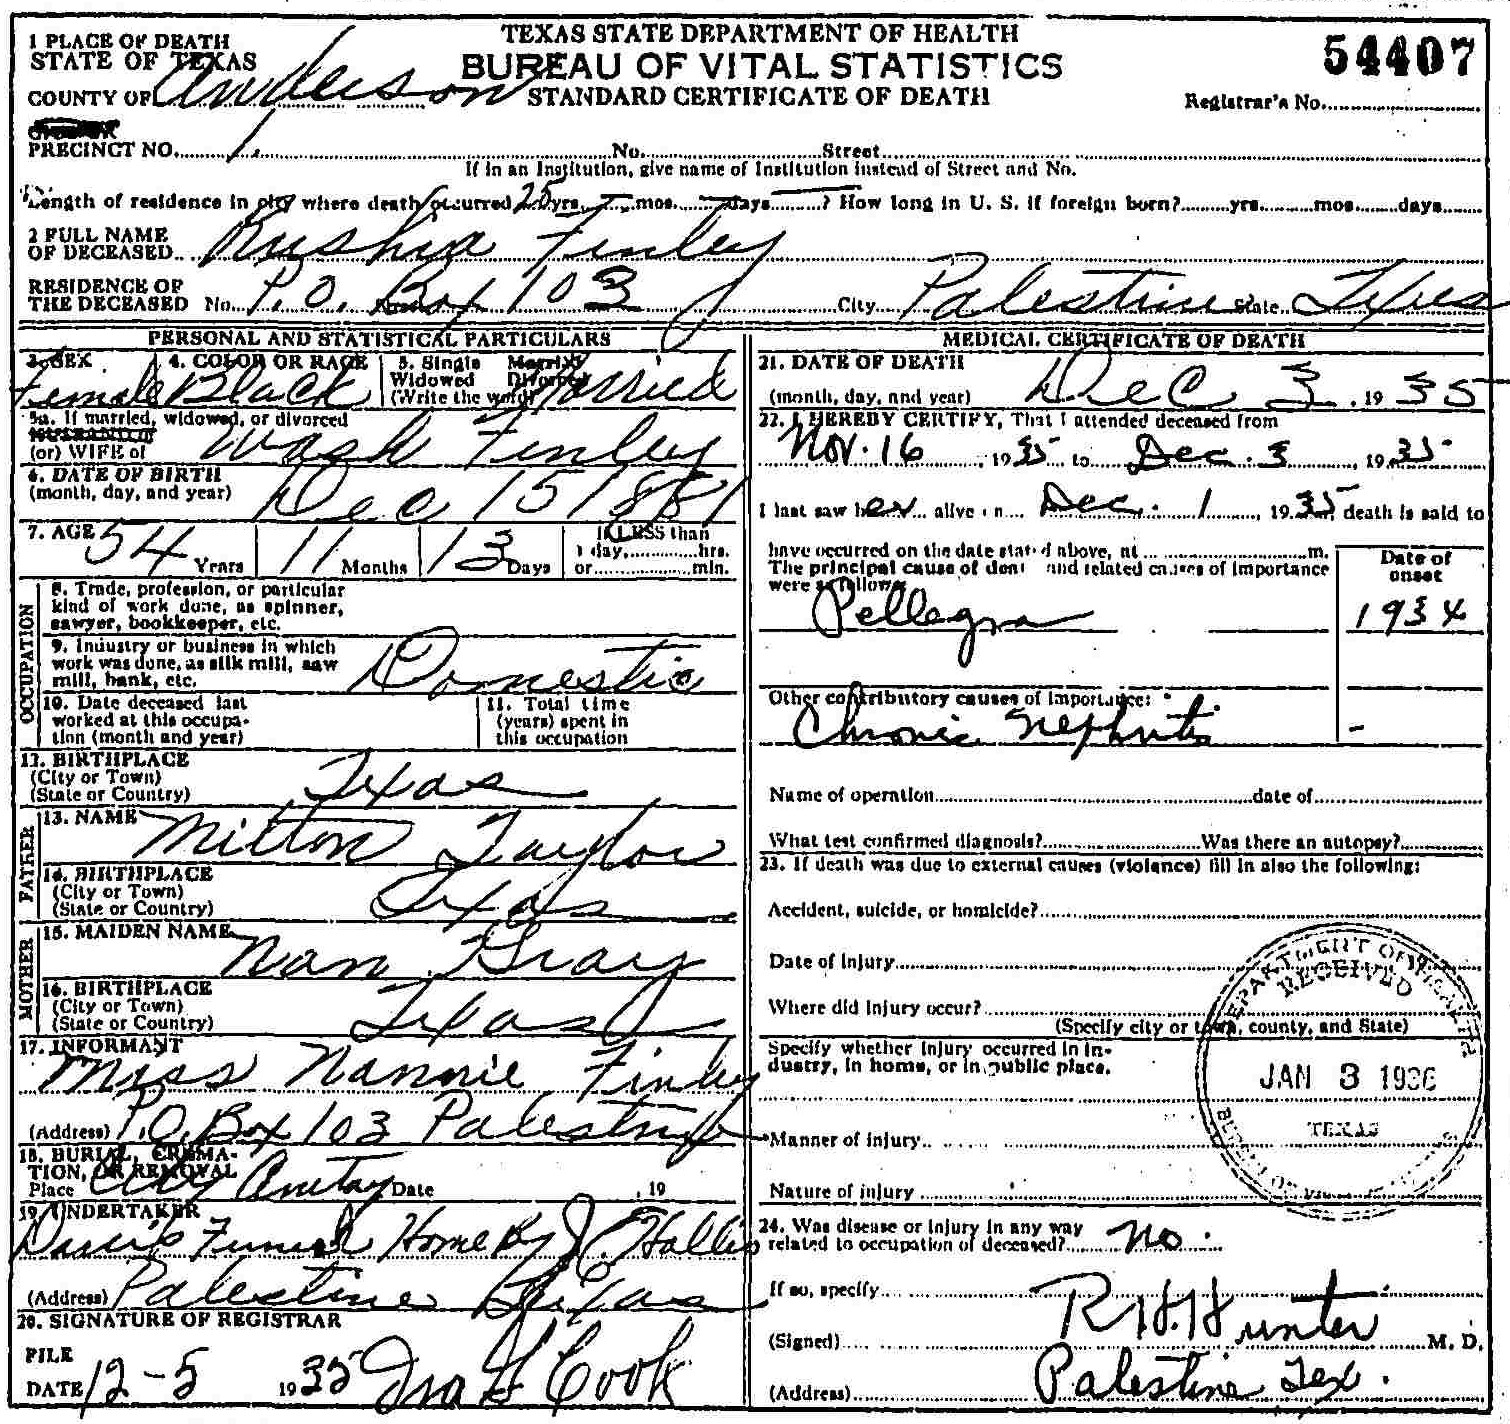 TEXAS STATE DEPARTMENT OF HEALTH
BUREAU OF VITAL STATISTICS
STANDARD CERTIFICATE OF DEATH
54407
1 PLACE OF DEATH
STATE OF TEXAS
COUNTY OF Anderson
Registrar's No.
PRECINCT NO. 1. No. Street
If in an Institution, give name of Institution instead of Street and No.
Length of residence in city where death occurred 25 yrs. mos. days ? How long in U. S. if foreign born? yrs. mos. days
2 FULL NAME
OF DECEASED Rushia Finley
RESIDENCE OF
THE DECEASED No. P.O. Box 103 City Palestine State Texas
PERSONAL AND STATISTICAL PARTICULARS
3. SEX Female
4. COLOR OR RACE Black
5. Single Married
Widowed Divorced
(Write the word) Married
5a. If married, widowed, or divorced
HUSBAND of
(or) WIFE of Wash Finley
6. DATE OF BIRTH
(month, day, and year) Dec 15 1881
7. AGE 54 Years 11 Months 13 Days
If LESS than
1 day, hrs.
or min.
OCCUPATION
8. Trade, profession, or particular
kind of work done, as spinner,
sawyer, bookkeeper, etc.
9. Industry or business in which
work was done, as silk mill, saw
mill, bank, etc. Domestic
10. Date deceased last
worked at this occupa-
tion (month and year)
11. Total time
(years) spent in
this occupation
12. BIRTHPLACE
(City or Town)
(State or Country) Texas
FATHER
13. NAME Milton Taylor
14. BIRTHPLACE
(City or Town)
(State or Country) Texas
MOTHER
15. MAIDEN NAME Nan Gray
16. BIRTHPLACE
(City or Town)
(State or Country) Texas
17. INFORMANT
Miss Nannie Finley
(Address) P.O. Box 103 Palestine
18. BURIAL, CREMA-
TION, OR REMOVAL
Place City Date , 19
19. UNDERTAKER
Funeral Home By Hollis
(Address) Palestine Texas
20. SIGNATURE OF REGISTRAR
FILE
DATE 12-5 1935 Cook
MEDICAL CERTIFICATE OF DEATH
21. DATE OF DEATH
(month, day, and year) Dec 3, 1935
22. I HEREBY CERTIFY, That I attended deceased from
Nov. 16, 1935 to Dec. 3, 1935
I last saw her alive on Dec. 1, 1935, death is said to
have occurred on the date stated above, at m.
The principal cause of death and related causes of importance
were as follows:
Date of
onset
Pellegra 1934
Other contributory causes of importance:
Chronic nephritis -
Name of operation date of
What test confirmed diagnosis? Was there an autopsy?
23. If death was due to external causes (violence) fill in also the following:
Accident, suicide, or homicide?
Date of injury
Where did injury occur?
(Specify city or town, county, and State)
Specify whether injury occurred in in-
dustry, in home, or in public place.
Manner of injury
Nature of injury
DEPARTMENT OF HEALTH
RECEIVED
JAN 3 1936
TEXAS
24. Was disease or injury in any way
related to occupation of deceased? No.
If so, specify
(Signed) R H. Hunter M. D.
(Address) Palestine Tex.